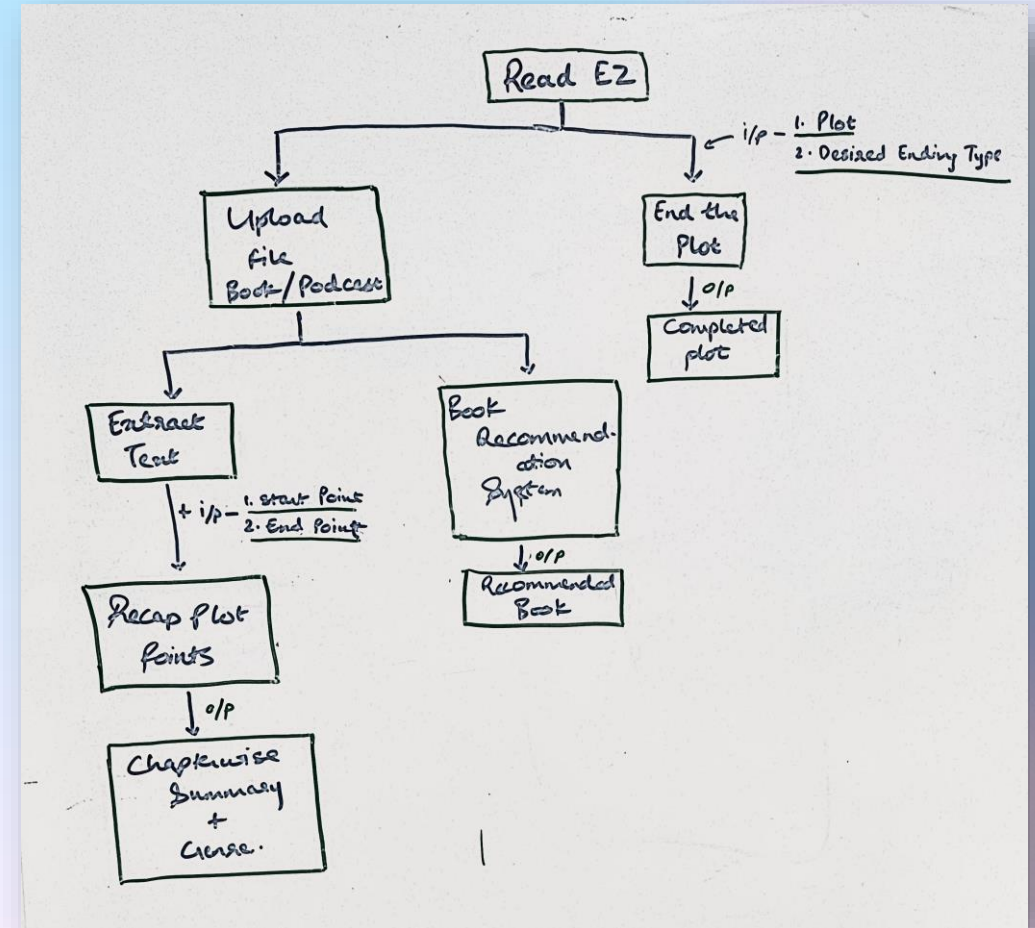 Read EZ
i/p - 1. Plot
2. Desired Ending Type
Upload
file
Book/Podcast
End the
Plot
o/p
Completed
plot
Extract
Text
+ i/p - 1. Start Point
2. End Point
Book
Recommend-
ation
System
o/p
Recommended
Book
Recap Plot
Points
o/p
Chapterwise
Summary
+
Genre.